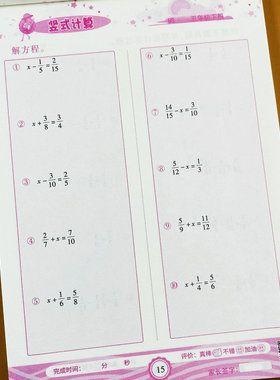 竖式计算
五年级下册
解方程。
① x-1/5=2/15
② x+3/8=3/4
③ x-3/10=2/5
④ 2/7+x=7/10
⑤ x+1/6=5/8
⑥ x-3/10=1/15
⑦ 14/15-x=3/10
⑧ 5/12-x=1/3
⑨ 5/9+x=11/12
⑩ x+1/4=5/6
完成时间: 分 秒
15
评价: 真棒 不错 加油